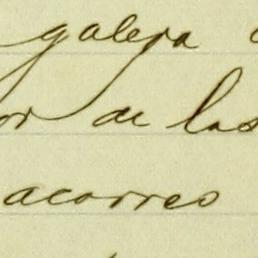 galera
or de las
acorreo